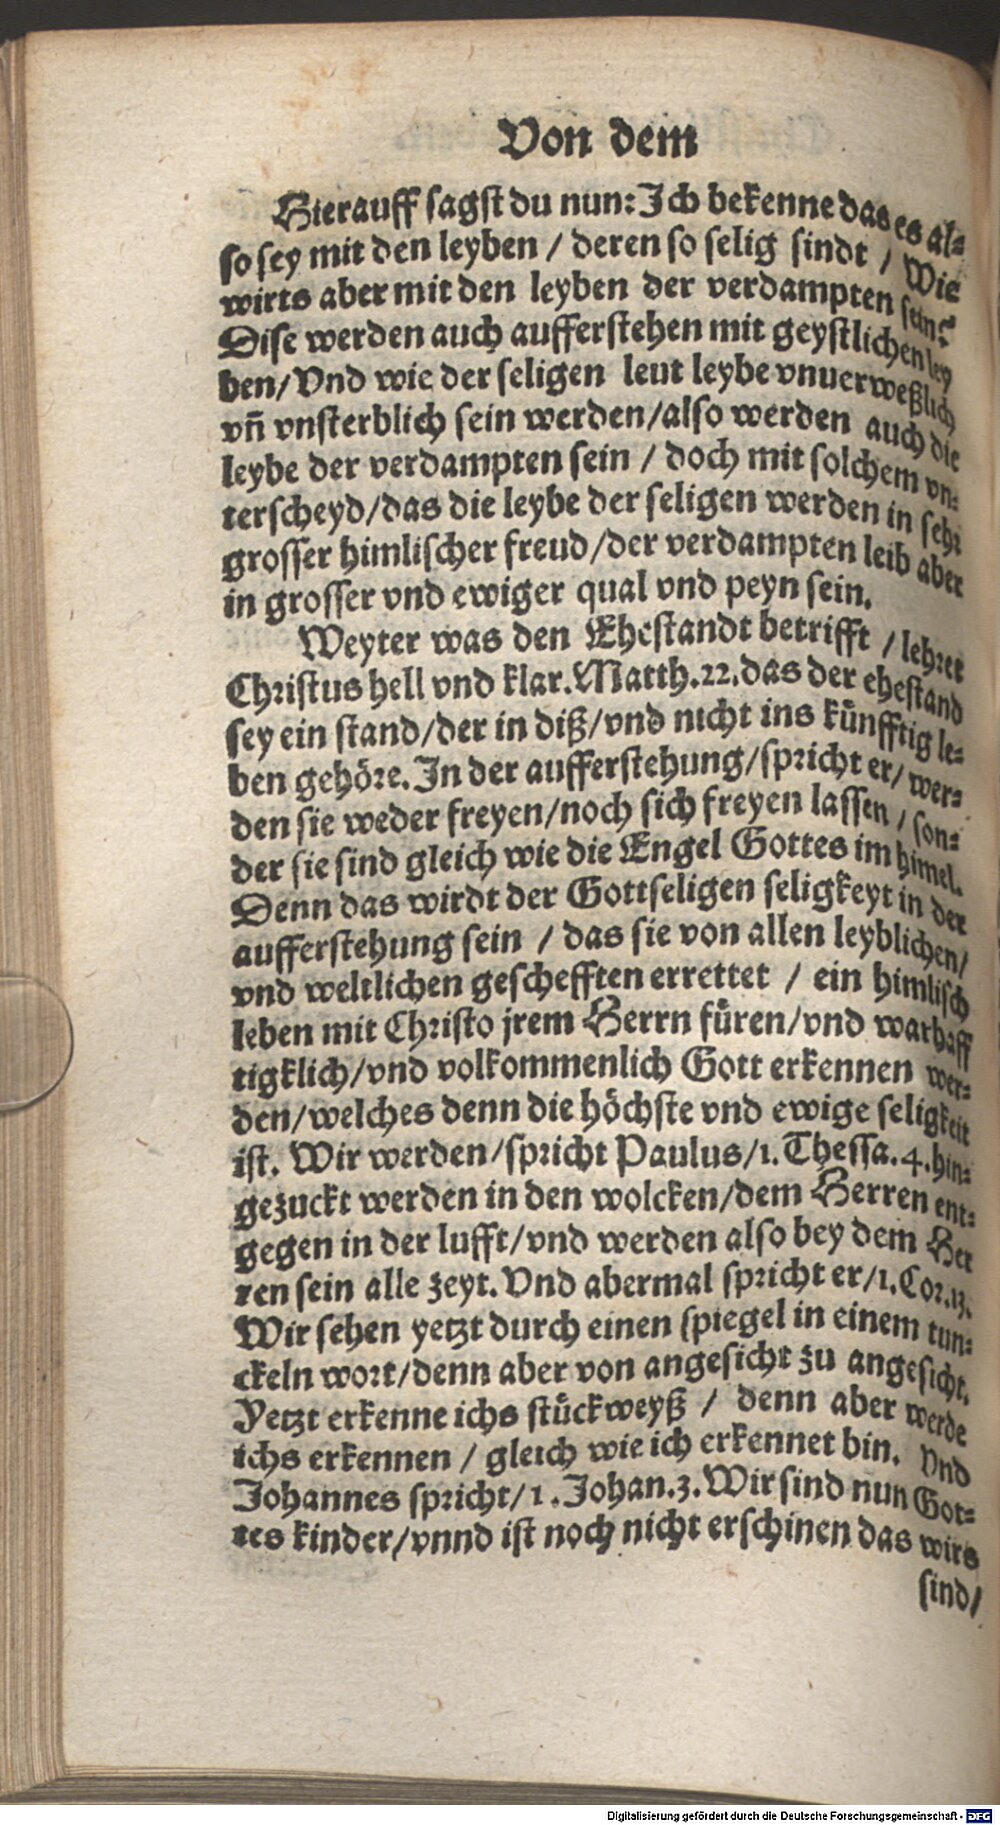 Von dem
Hierauff sagst du nun: Ich bekenne das es al-
so sey mit den leyben / deren so selig sindt / Wie
wirts aber mit den leyben der verdampten sein?
Dise werden auch aufferstehen mit geystlichen ley
ben/Vnd wie der seligen leut leybe vnuerweßlich
vñ vnsterblich sein werden/also werden auch die
leybe der verdampten sein / doch mit solchem vn-
terscheyd/das die leybe der seligen werden in sehr
grosser himlischer freud/der verdampten leib aber
in grosser vnd ewiger qual vnd peyn sein.
Weyter was den Ehestandt betrifft / lehret
Christus hell vnd klar. Matth. 22. das der ehestand
sey ein stand/der in diß/vnd nicht ins künfftig le-
ben gehöre. In der aufferstehung/spricht er/ wer-
den sie weder freyen/noch sich freyen lassen / son-
der sie sind gleich wie die Engel Gottes im himel.
Denn das wirdt der Gottseligen seligkeyt in der
aufferstehung sein / das sie von allen leyblichen/
vnd weltlichen geschefften errettet / ein himlisch
leben mit Christo jrem Herrn füren/vnd warhaff
tigklich/vnd volkommenlich Gott erkennen wer-
den/welches denn die höchste vnd ewige seligkeit
ist. Wir werden/spricht Paulus/1. Thessa. 4. hin-
gezuckt werden in den wolcken/dem Herren ent-
gegen in der lufft/vnd werden also bey dem Her
ren sein alle zeyt. Vnd abermal spricht er/1. Cor. 13.
Wir sehen yetzt durch einen spiegel in einem tun-
ckeln wort/denn aber von angesicht zu angesicht.
Yetzt erkenne ichs stückweyß / denn aber werde
ichs erkennen / gleich wie ich erkennet bin. Vnd
Johannes spricht/1. Johan. 3. Wir sind nun Got-
tes kinder/vnnd ist noch nicht erschinen das wirs
sind/
Digitalisierung gefördert durch die Deutsche Forschungsgemeinschaft - DFG